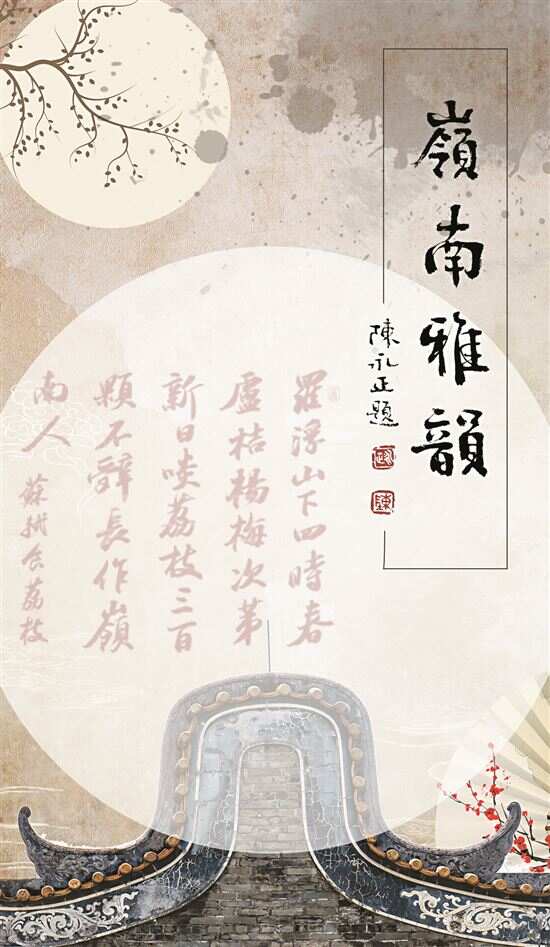 嶺南雅韻
陳永正題
羅浮山下四時春
盧桔楊梅次第
新日啖荔枝三百
顆不辭長作嶺
南人
蘇軾食荔枝